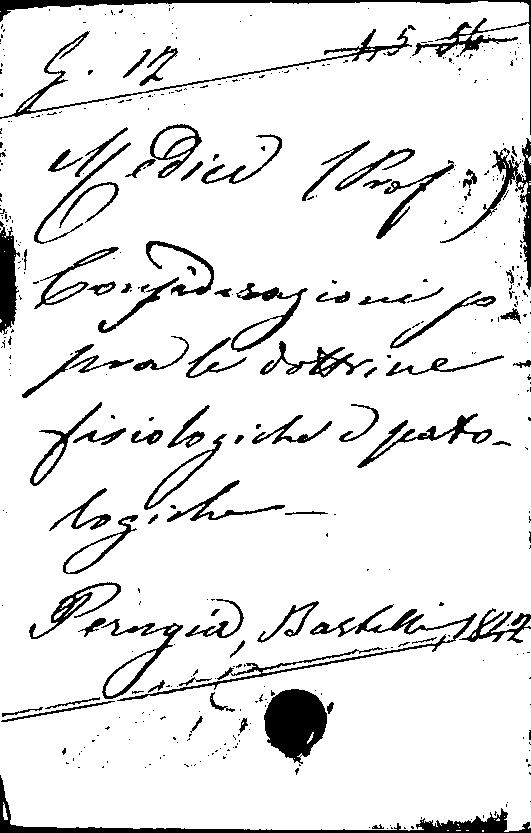 G. 12 1.5.54
Medici (Prof.)
Considerazioni so
pra le dottrine
fisiologiche e pato-
logiche —
Perugia, Bartelli, 1842